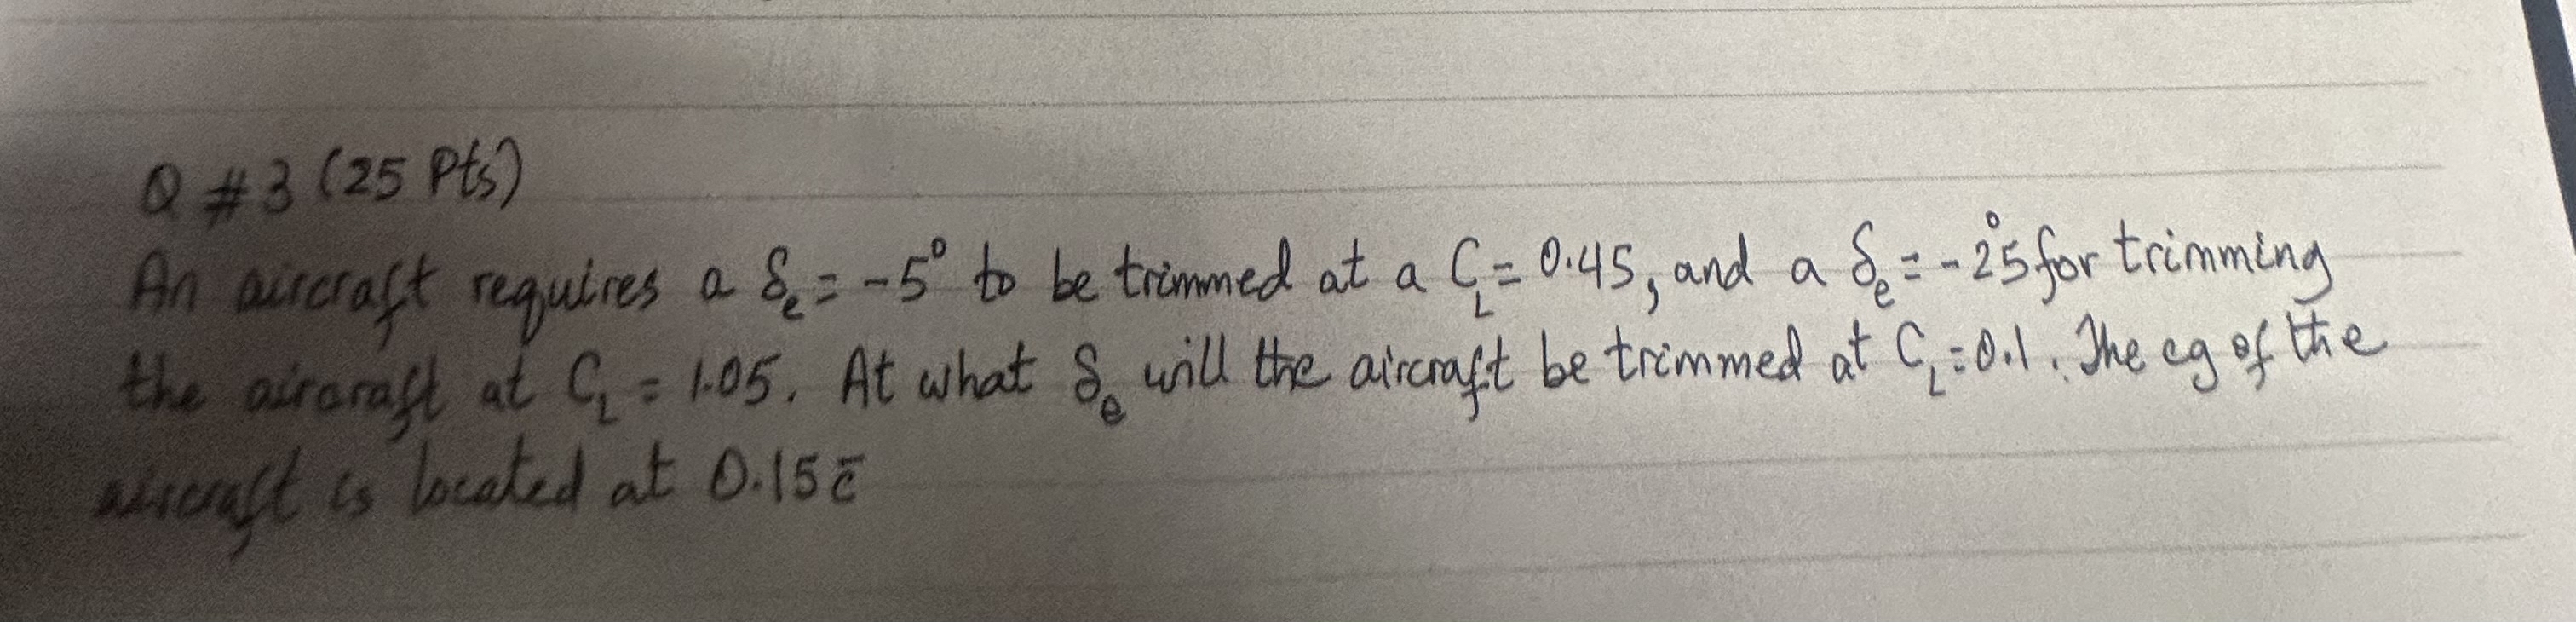 Q #3 (25 Pts)
An aircraft requires a δₑ = -5° to be trimmed at a C_L = 0.45, and a δₑ = -25° for trimming
the aircraft at C_L = 1.05. At what δₑ will the aircraft be trimmed at C_L = 0.1. The cg of the
aircraft is located at 0.15c̄